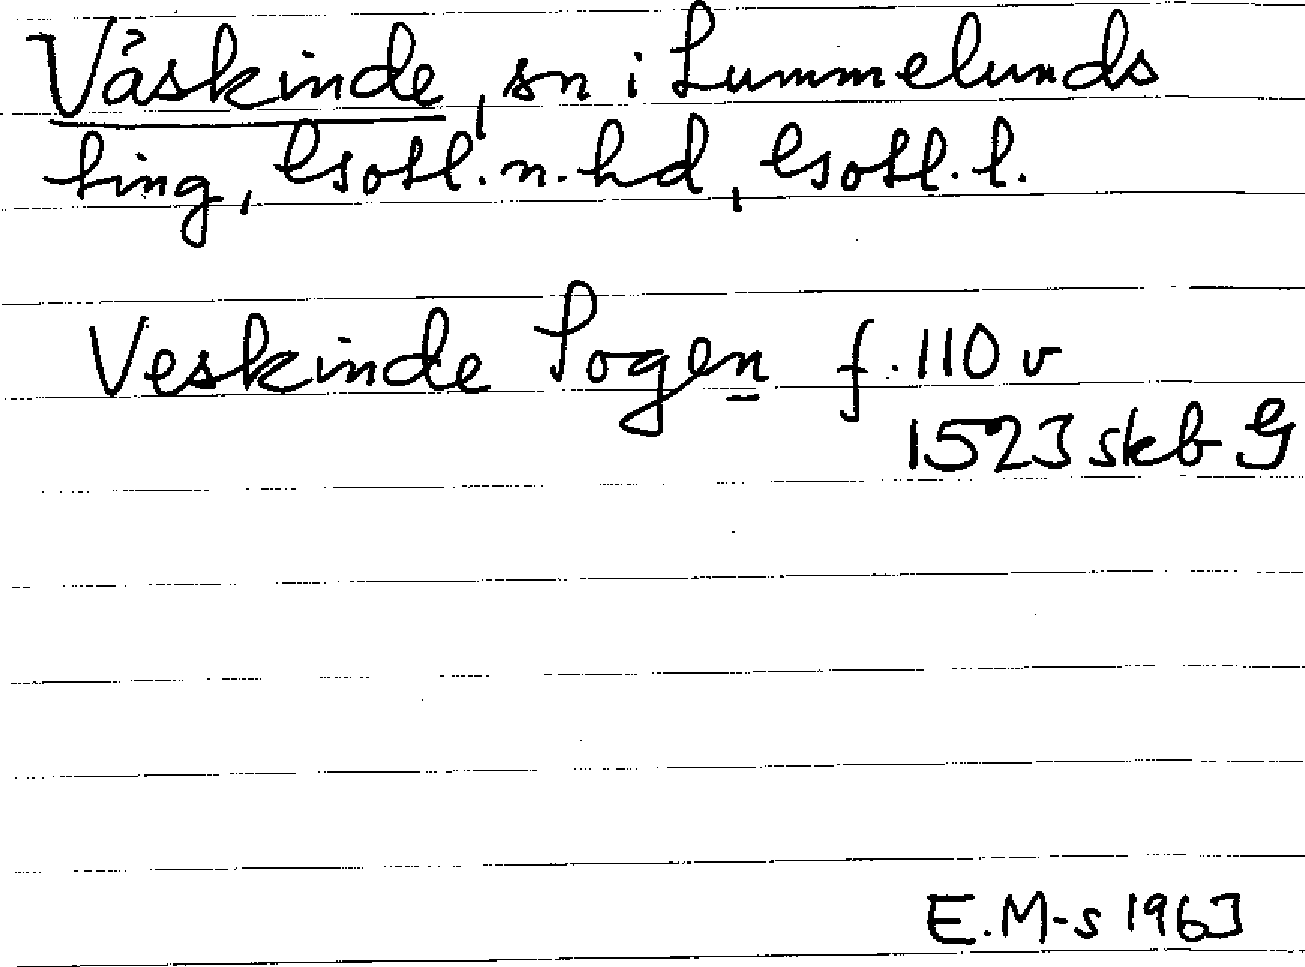 Väskinde, sn i Lummelunds
ting, Gotl. n. hd, Gotl. l.
Veskinde Sogen f. 110 v
1523 skb G
E. M-s 1963